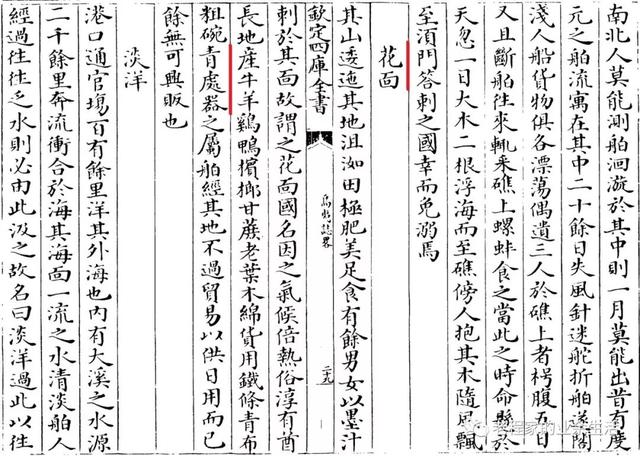 南北人莫能測舶洄漩於其中則一月莫能出昔有度
元之舶流寓在其中二十餘日失風針迷舵折舶遂閣
淺人船貨物俱各漂蕩偶遺三人於礁上者枵腹五日
又且斷舶往來輒采礁上螺蚌食之當此之時命懸於
天忽一日大木二根浮海而至礁傍人抱其木隨風飄
至湏門答刺之國幸而免溺焉
花面
其山逶迤其地沮洳田極肥美足食有餘男女以墨汁
欽定四庫全書
島夷誌畧
二十九
刺於其面故謂之花面國名因之氣候倍熱俗淳有酋
長地産牛羊雞鴨檳榔甘蔗老葉木綿貨用鐵條青布
粗碗青處器之屬舶經其地不過貿易以供日用而已
餘無可興販也
淡洋
港口通官塲百有餘里洋其外海也内有大溪之水源
二千餘里奔流衝合於海其海面一流之水清淡舶人
經過往往乏水則必由此汲之故名曰淡洋過此以往